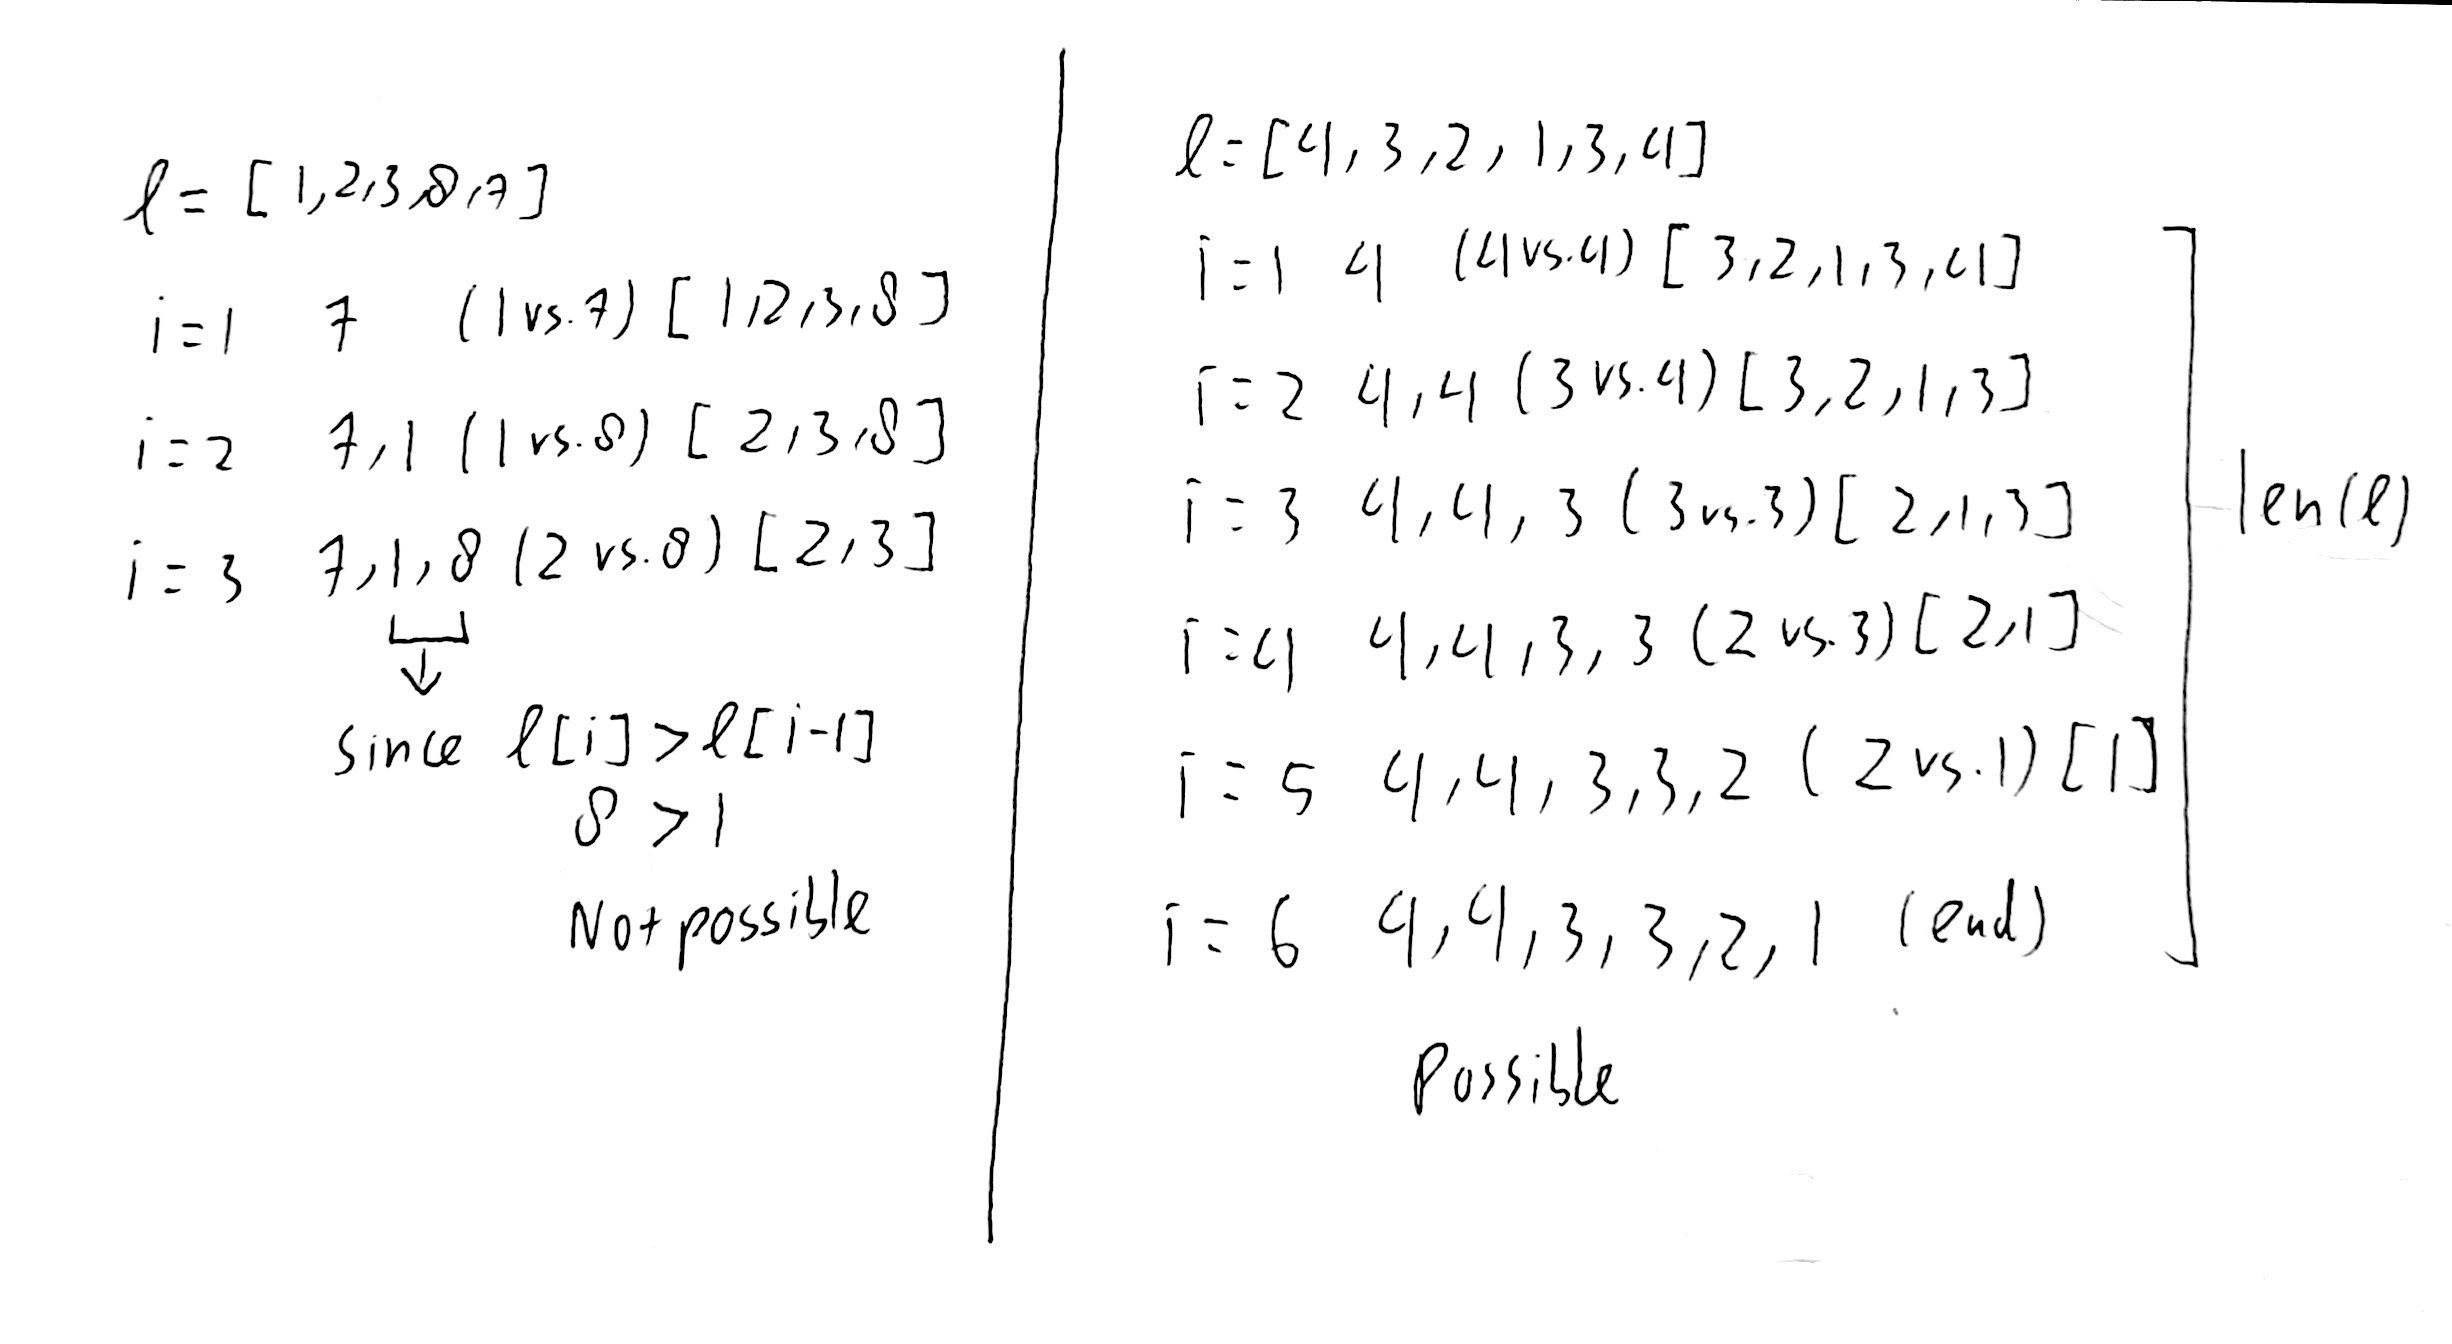 l = [1,2,3,8,7]
i=1 7 (1 vs. 7) [1,2,3,8]
i=2 7,1 (1 vs. 8) [2,3,8]
i=3 7,1,8 (2 vs. 8) [2,3]
since l[i] > l[i-1]
8 > 1
Not possible
l=[4,3,2,1,3,4]
i=1 4 (4 vs. 4) [3,2,1,3,4]
i=2 4,4 (3 vs. 4) [3,2,1,3]
i=3 4,4,3 (3 vs. 3) [2,1,3]
i=4 4,4,3,3 (2 vs. 3) [2,1]
i=5 4,4,3,3,2 (2 vs. 1) [1]
i=6 4,4,3,3,2,1 (end)
len(l)
Possible